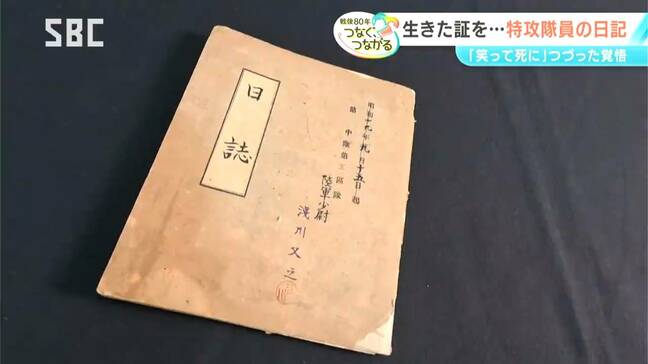 SBC
戦後80年
つなぐ、
つながる
生きた証を…特攻隊員の日記
「笑って死に」つづった覚悟
日誌
昭和十九年九月十五日起
第 中隊第三區隊
陸軍少尉
浅川又之